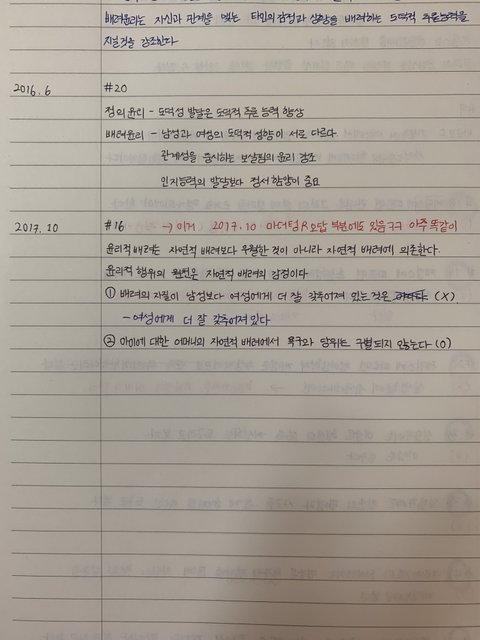 배려윤리는 자신과 관계을 맺는 타인의 감정과 상황을 배려하는 도덕적 추론능력을
지닐것을 강조한다
2016.6 #20
정의윤리 - 도덕성 발달은 도덕적 추론 능력 향상
배려윤리 - 남성과 여성의 도덕적 성향이 서로 다르다.
관계성을 중시하는 보살핌의 윤리 강조
인지능력의 발달보다 정서 함양이 중요
2017.10 #16 → 이거 2017.10 마더텅 R 오답 부분에도 있음 ㄱㄱ 아주 똑같이
윤리적 배려는 자연적 배려보다 우월한 것이 아니라 자연적 배려에 의존한다.
윤리적 행위의 원천은 자연적 배려의 감정이다
① 배려의 자질이 남성보다 여성에게 더 잘 갖추어져 있는 것은 아니다. (X)
- 여성에게 더 잘 갖추어져 있다
② 아이에 대한 어머니의 자연적 배려에서 욕구와 당위는 구별되지 않는다 (O)